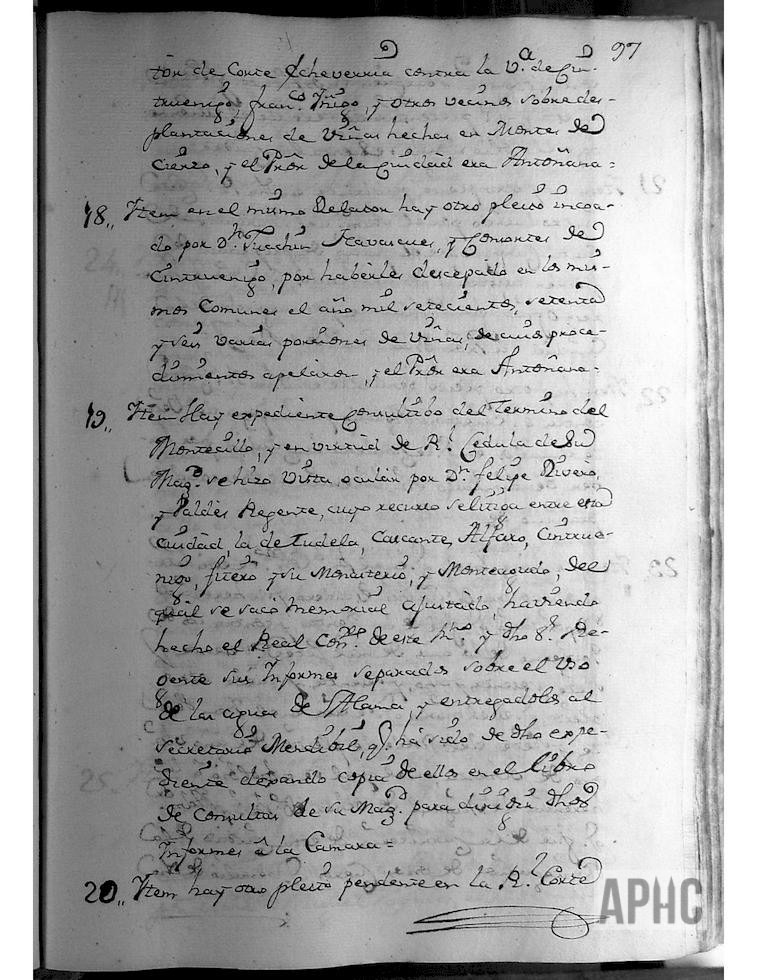 97
tor de Corte Echeverria contra la V.ª de Cin-
truenigo, Fran.co Yñigo, y otros vecinos sobre des-
plantaciones de Viñas hechas en Montes de
Cierzo, y el Prôr de la Ciudad era Antoñana=
18,, Ytem en el mismo Relator hay otro pleito incoa-
do por D.n Juachin y Consortes de
Cintruenigo, por haberles descepado en los mis-
mos Comunes el año mil setecientos, setenta
y seis varias porciones de Viñas, de cuios proce-
dimientos apelaron, y el Prôr era Antoñana=
19,, Ytem Hay expediente Consultibo del Termino del
Montecillo, y en virtud de R.l Cedula de Su
Mag.d se hizo Vista ocular por D.n Felipe Rivero,
y Valdés Regente, cuyo recurso se litiga entre esta
Ciudad, la de Tudela, Cascante, Alfaro, Cintrue-
nigo, fitero y su Monasterio, y Monteagudo, del
qual se sacó memorial ajustado, haviendo
hecho el Real Con.so de este R.no y dho S.r Re-
gente sus Informes separados sobre el uso
de las aguas de S Alama y entregadolos al
Secretario Mendibil, q.e ha sido de dho expe-
diente dexando copia de ellos en el libro
de consultas de su Mag.d para dirigir dhos
Informes â la Camara=
20,, Ytem hay otro pleito pendente en la R.l Corte
APHC